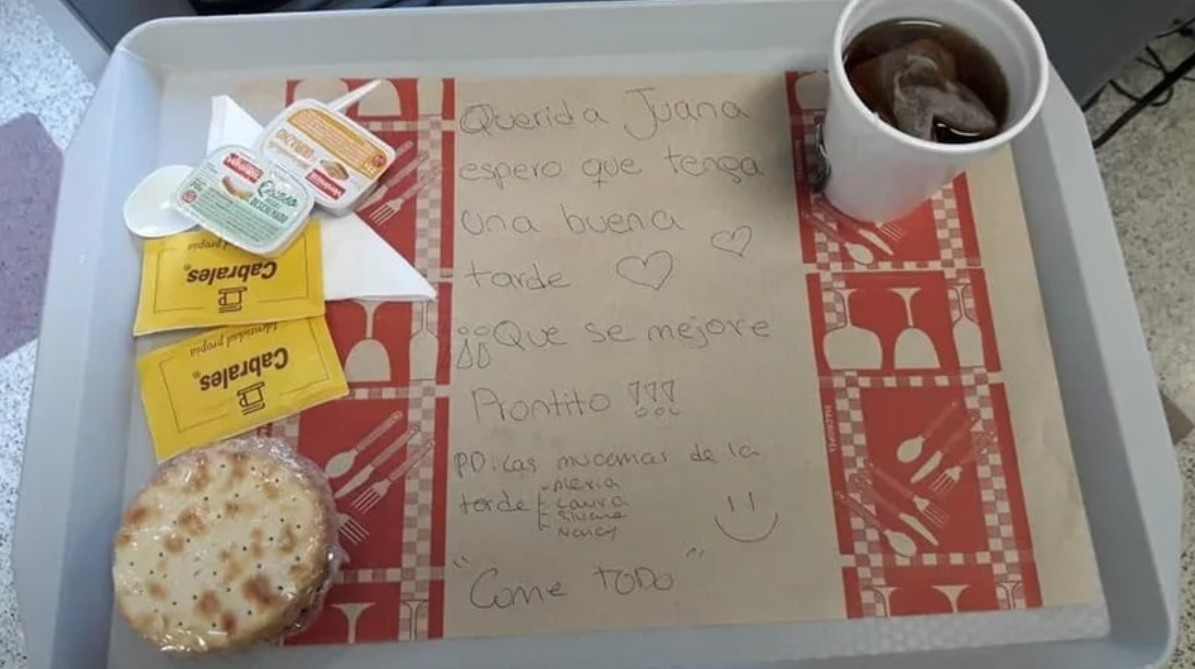 Querida Juana
espero que tenga
una buena
tarde
¡¡Que se mejore
Prontito !!!
PD: Las mucamas de la
tarde
- Alexia
- Laura
- Silvana
- Nancy
"Come TODO"
Cabrales®
Identidad propia
Cabrales®
Identidad propia
Mendicrim
DESCREMADO